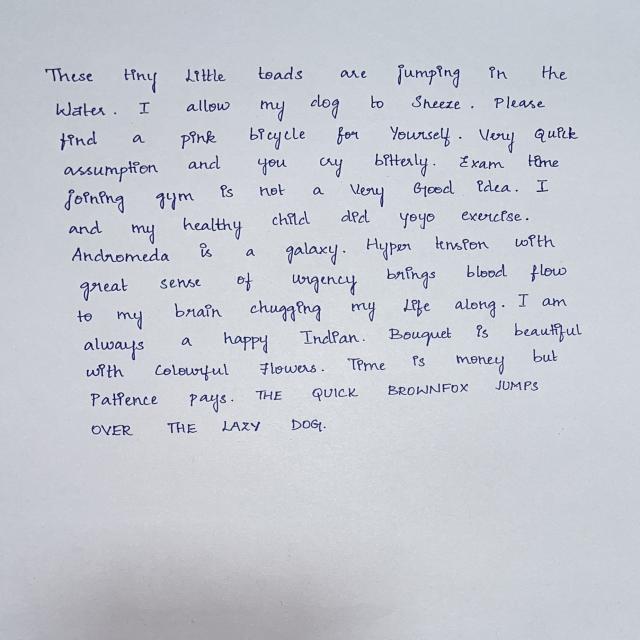 These tiny Little toads are jumping in the
Water. I allow my dog to Sneeze. Please
find a pink bicycle for Yourself. Very Quick
assumption and you cry bitterly. Exam time
joining gym is not a Very Good idea. I
and my healthy child did yoyo exercise.
Andromeda is a galaxy. Hyper tension with
great sense of urgency brings blood flow
to my brain chugging my Life along. I am
always a happy Indian. Bouquet is beautiful
with Colourful Flowers. Time is money but
Patience pays. THE QUICK BROWNFOX JUMPS
OVER THE LAZY DOG.